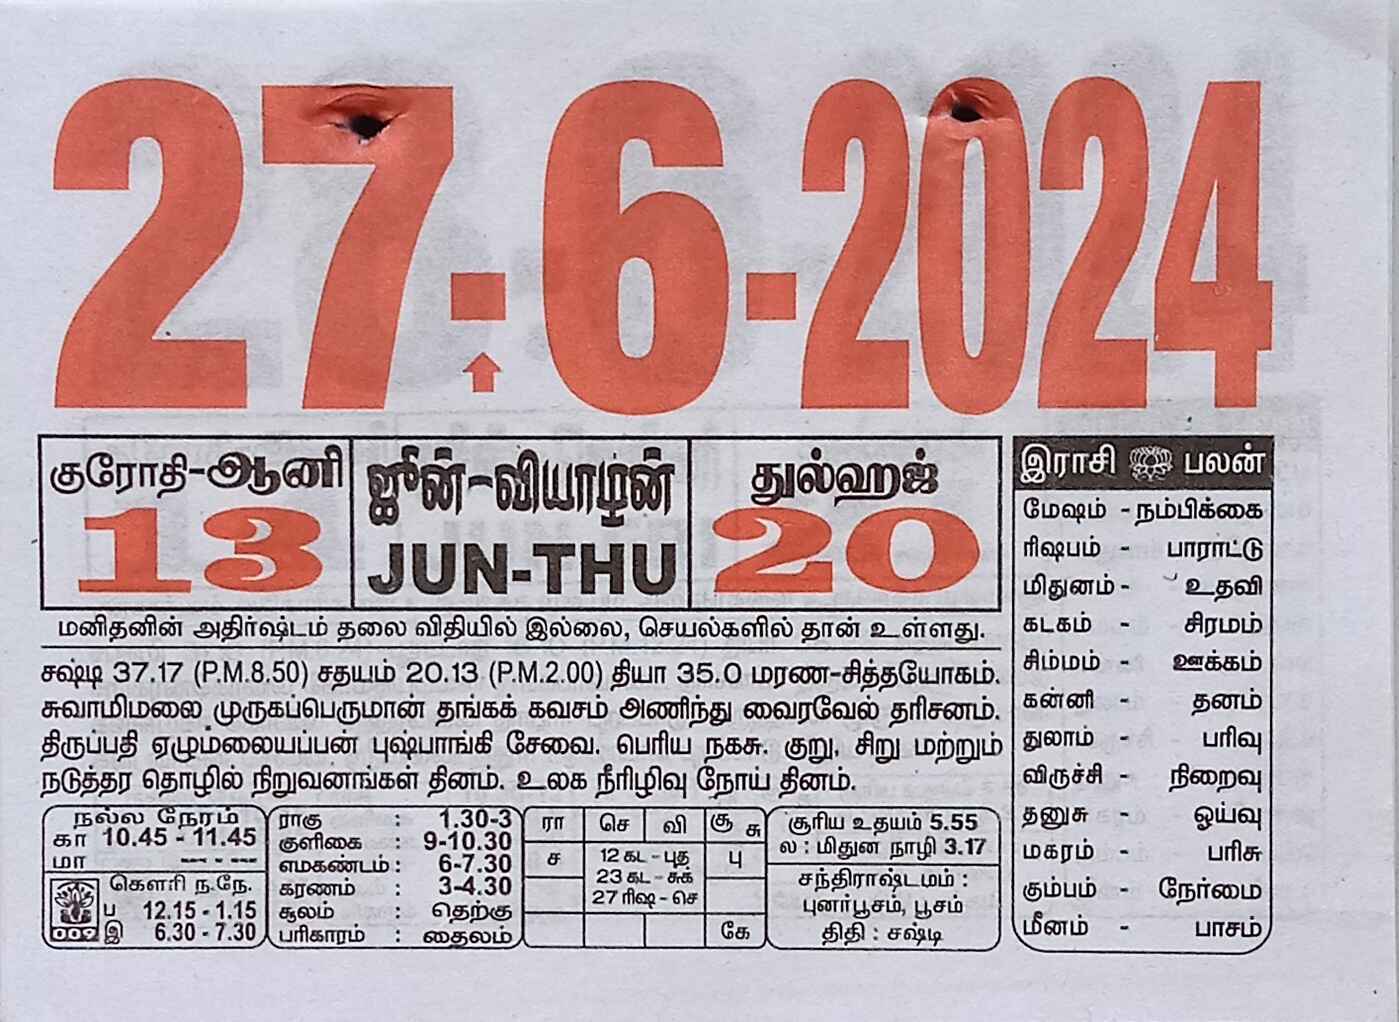 27.6.2024
குரோதி-ஆனி
13
ஜூன்-வியாழன்
JUN-THU
துல்ஹஜ்
20
மனிதனின் அதிர்ஷ்டம் தலை விதியில் இல்லை, செயல்களில் தான் உள்ளது.
சஷ்டி 37.17 (P.M.8.50) சதயம் 20.13 (P.M.2.00) தியா 35.0 மரண-சித்தயோகம்.
சுவாமிமலை முருகப்பெருமான் தங்கக் கவசம் அணிந்து வைரவேல் தரிசனம்.
திருப்பதி ஏழுமலையப்பன் புஷ்பாங்கி சேவை. பெரிய நகசு. குறு, சிறு மற்றும்
நடுத்தர தொழில் நிறுவனங்கள் தினம். உலக நீரிழிவு நோய் தினம்.
நல்ல நேரம்
கா 10.45 - 11.45
மா -- -- --
கௌரி ந.நே.
ப 12.15 - 1.15
இ 6.30 - 7.30
009
ராகு : 1.30-3
குளிகை : 9-10.30
எமகண்டம் : 6-7.30
கரணம் : 3-4.30
சூலம் : தெற்கு
பரிகாரம் : தைலம்
ரா செ வி சூ சு
ச 12 கட - புத பு
23 கட - சுக்
27 ரிஷ - செ
கே
சூரிய உதயம் 5.55
ல : மிதுன நாழி 3.17
சந்திராஷ்டமம் :
புனர்பூசம், பூசம்
திதி : சஷ்டி
இராசி பலன்
மேஷம் - நம்பிக்கை
ரிஷபம் - பாராட்டு
மிதுனம் - உதவி
கடகம் - சிரமம்
சிம்மம் - ஊக்கம்
கன்னி - தனம்
துலாம் - பரிவு
விருச்சி - நிறைவு
தனுசு - ஓய்வு
மகரம் - பரிசு
கும்பம் - நேர்மை
மீனம் - பாசம்